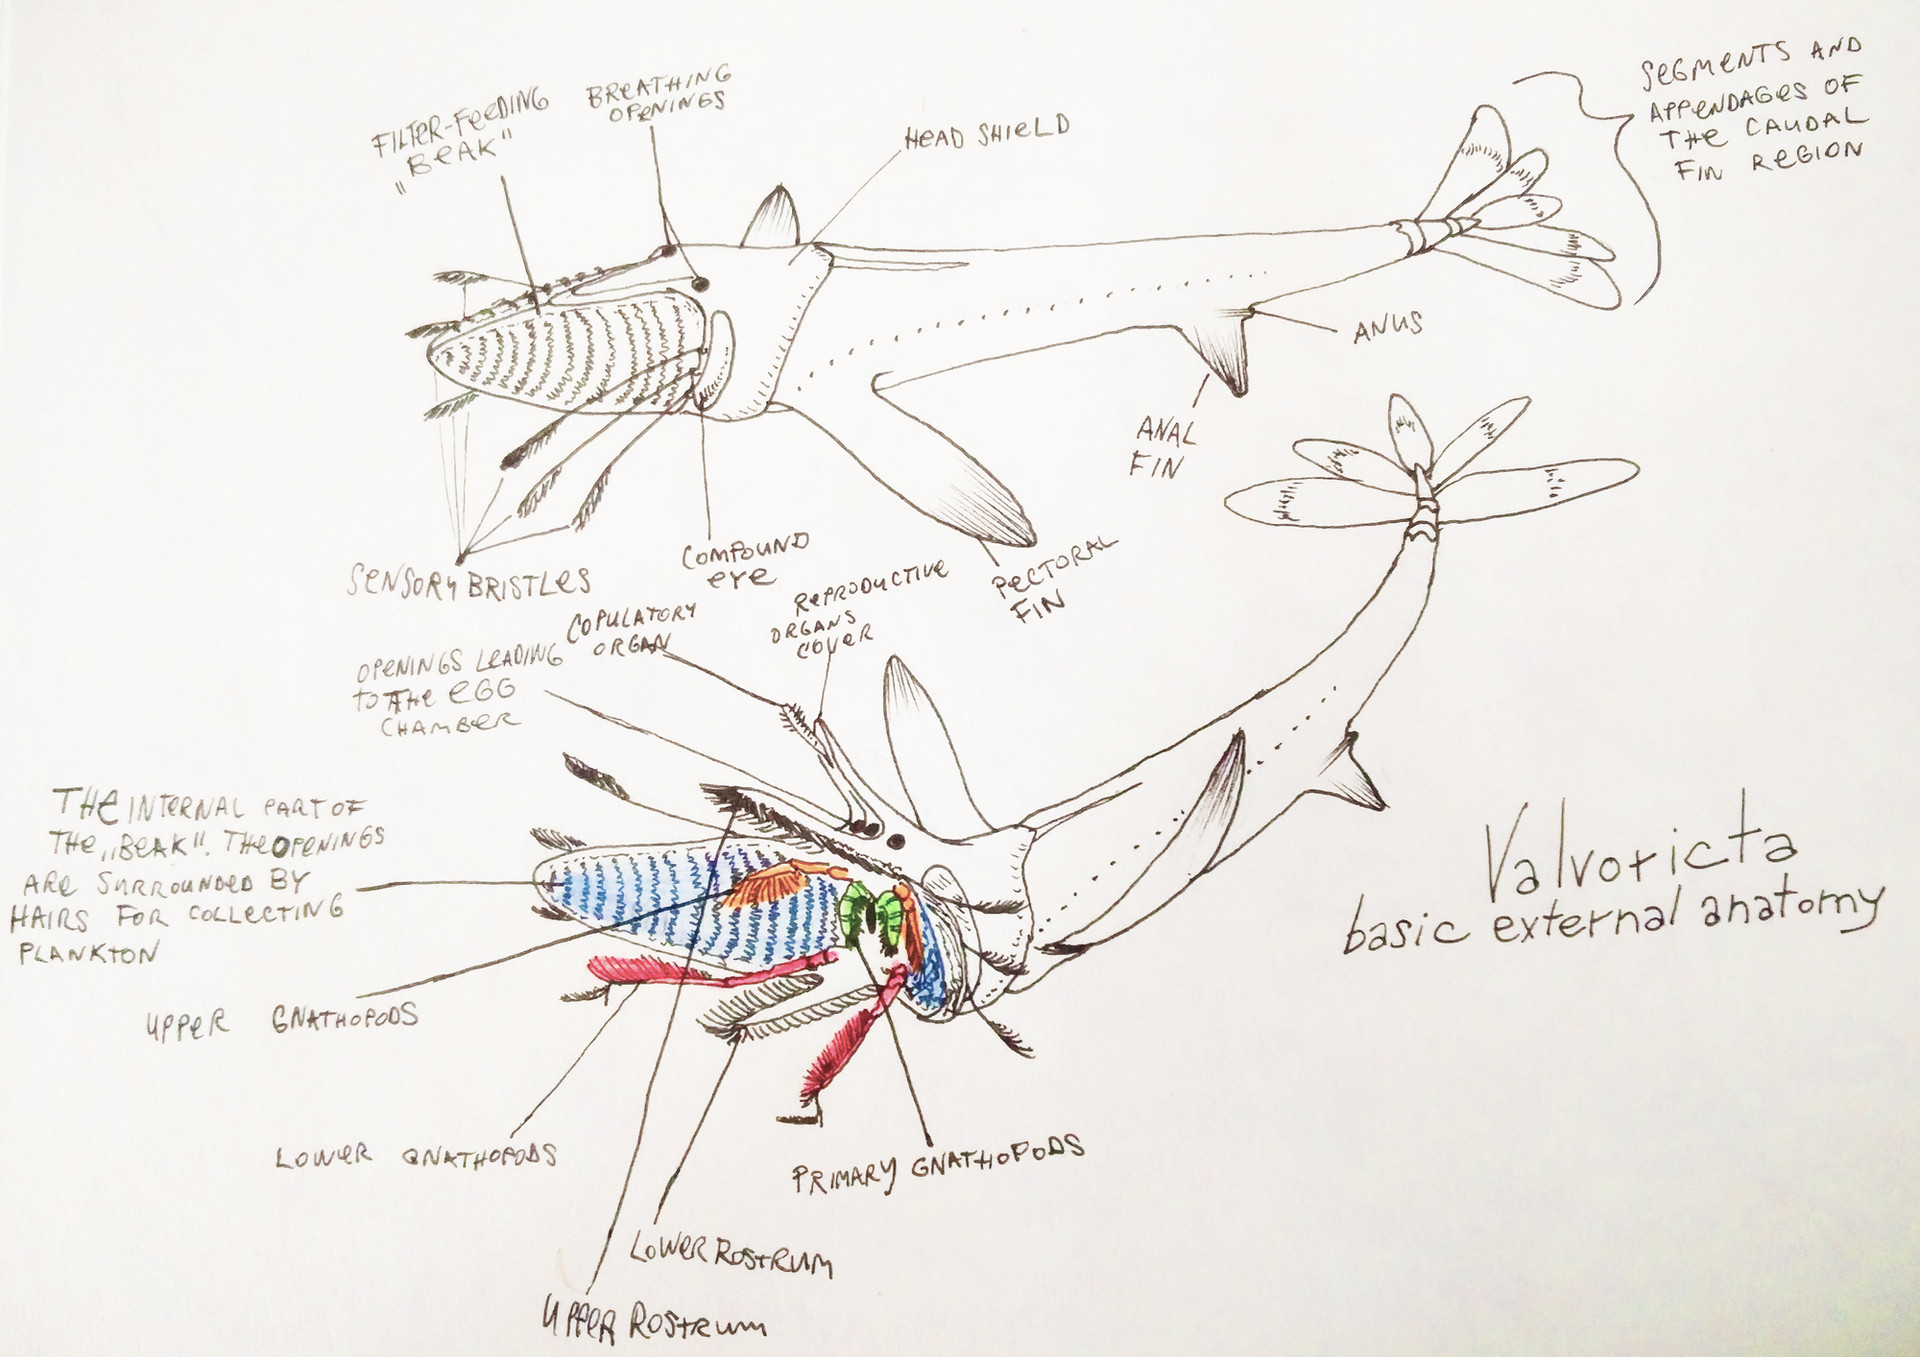 FILTER-FEEDING
„BEAK"
BREATHING
OPENINGS
HEAD SHIELD
SEGMENTS AND
APPENDAGES OF
THE CAUDAL
FIN REGION
ANUS
ANAL
FIN
PECTORAL
FIN
COMPOUND
EYE
SENSORY BRISTLES
COPULATORY
ORGAN
REPRODUCTIVE
ORGANS
COVER
OPENINGS LEADING
TO THE EGG
CHAMBER
THE INTERNAL PART OF
THE „BEAK". THE OPENINGS
ARE SURROUNDED BY
HAIRS FOR COLLECTING
PLANKTON
UPPER GNATHOPODS
LOWER GNATHOPODS
PRIMARY GNATHOPODS
LOWER ROSTRUM
UPPER ROSTRUM
Valvoricta
basic external anatomy